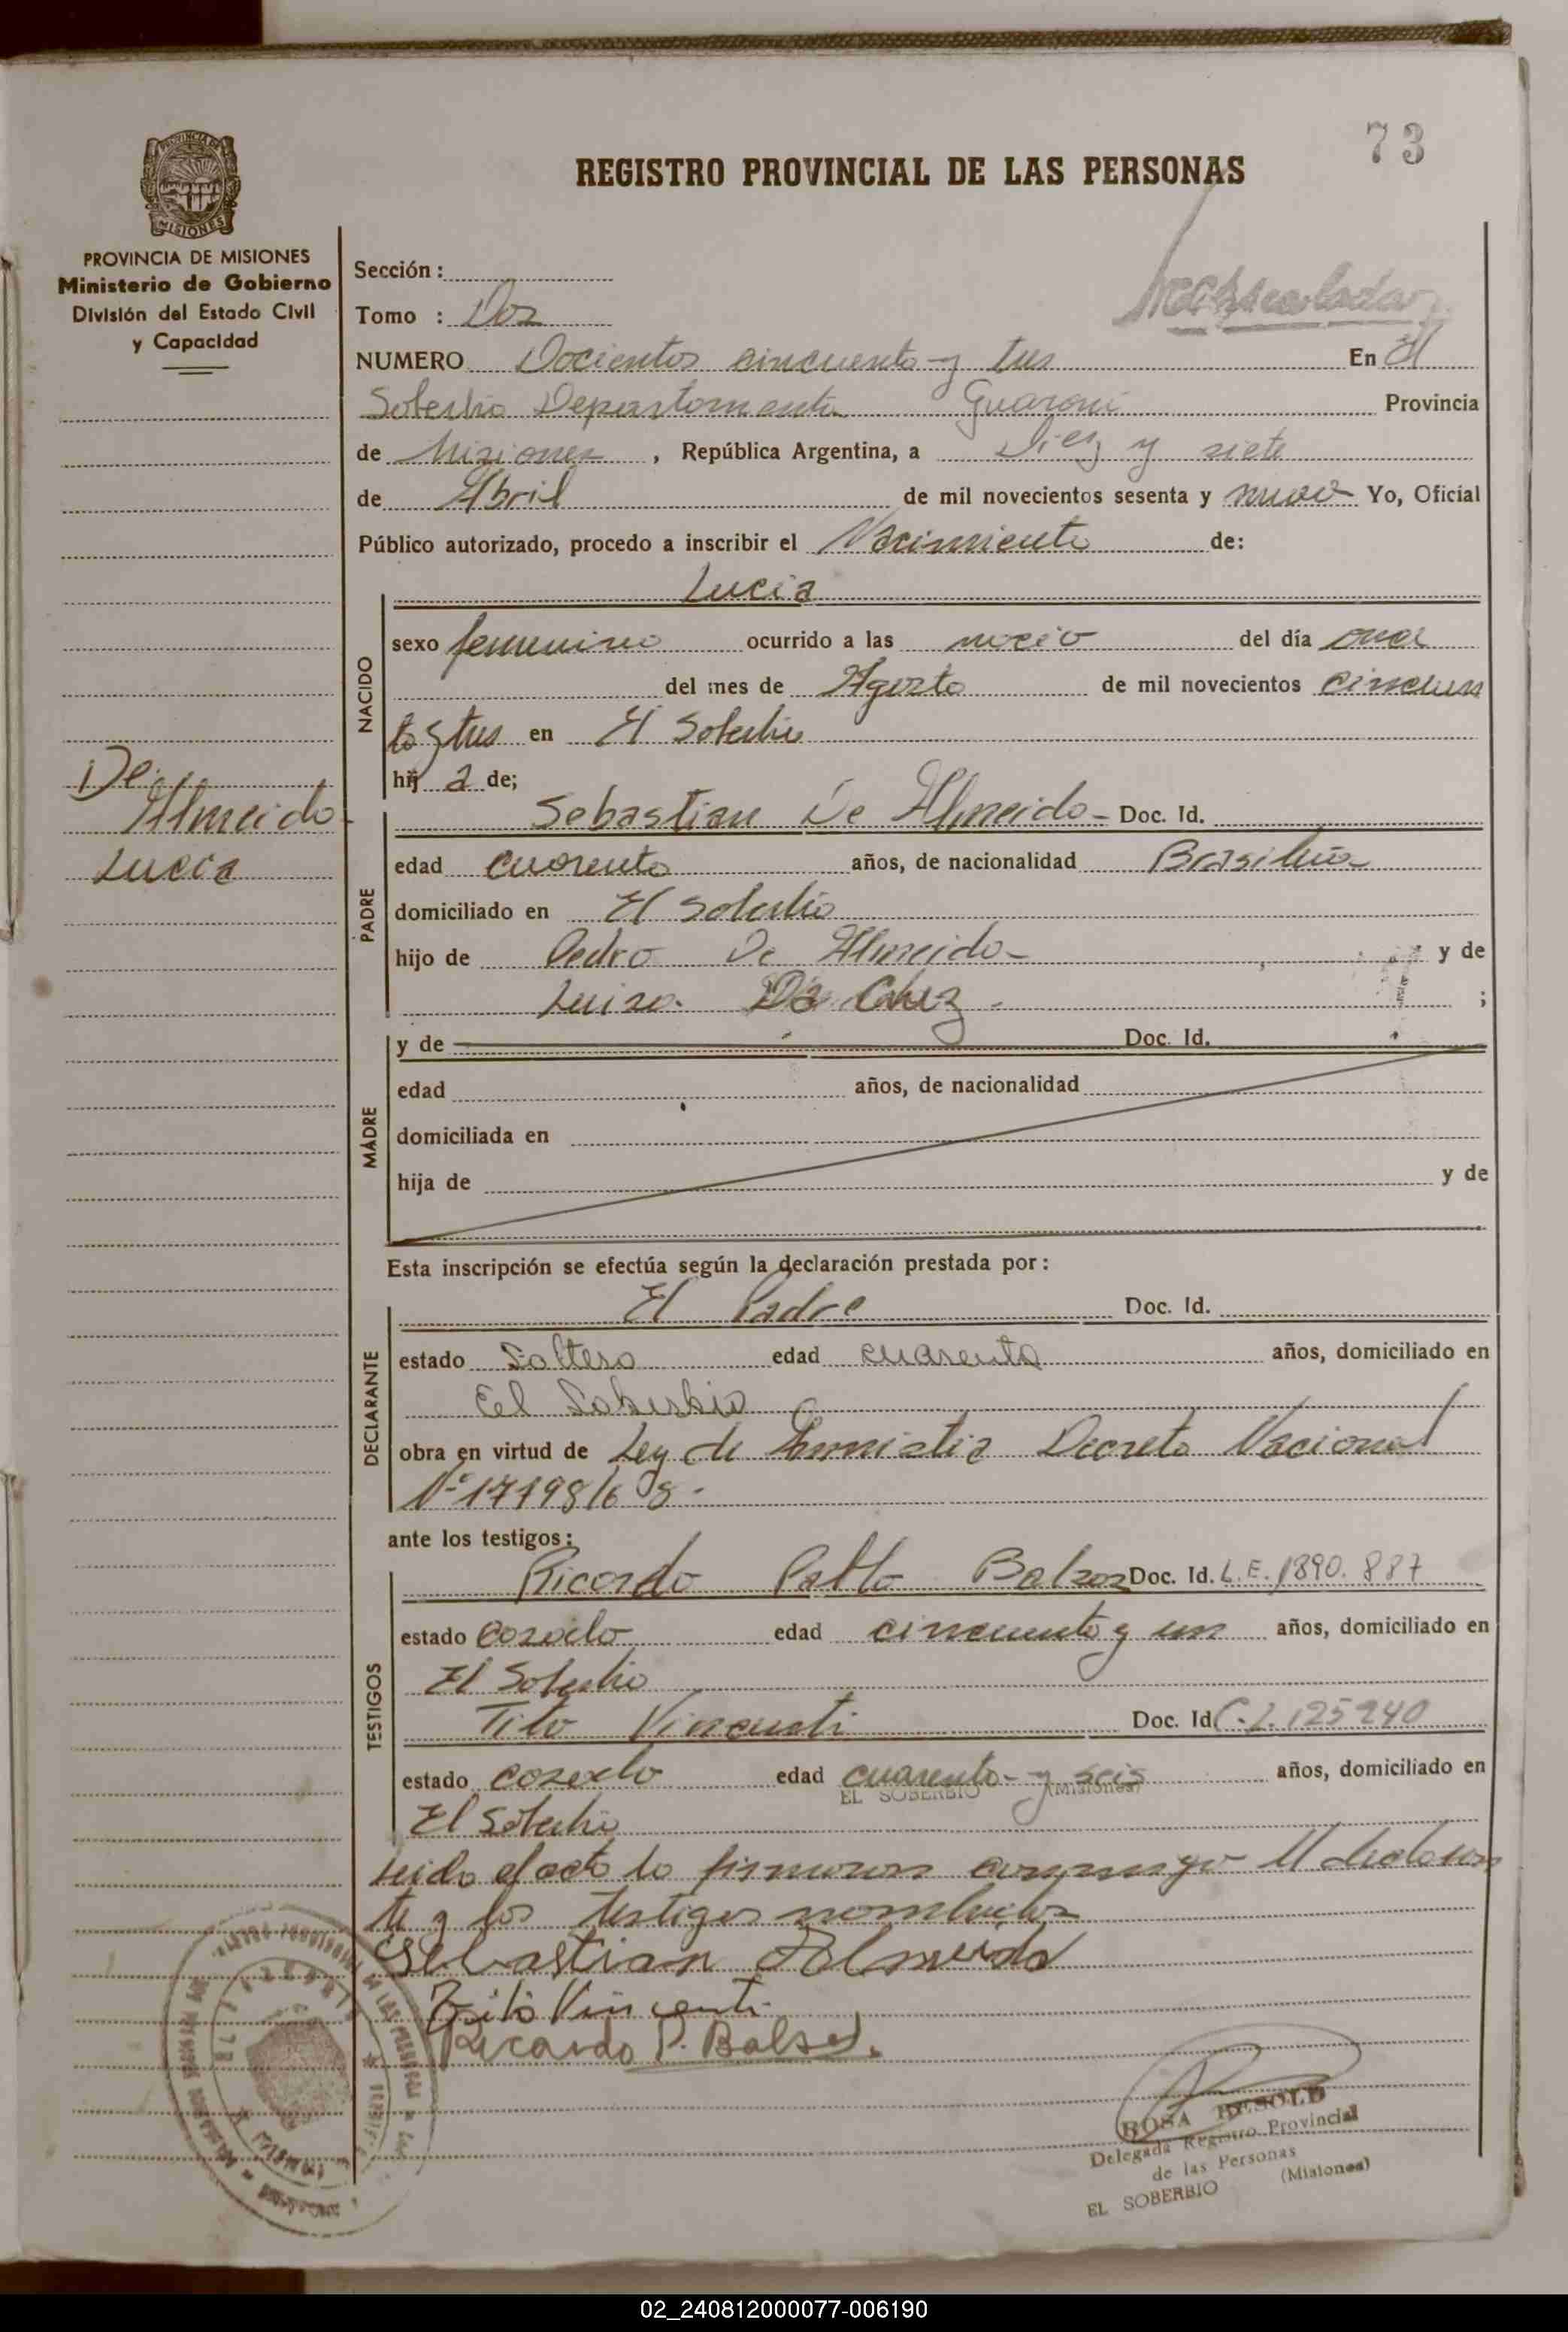 73
REGISTRO PROVINCIAL DE LAS PERSONAS
MISIONES
PROVINCIA DE MISIONES
Ministerio de Gobierno
División del Estado Civil
y Capacidad
De
Almeida
Lucia
Sección:
Tomo : Dos
NUMERO Docientos cincuenta y tres En El
Soberbio Departamento Guarani Provincia
de Misiones, República Argentina, a Diez y siete
de Abril de mil novecientos sesenta y nueve Yo, Oficial
Público autorizado, procedo a inscribir el Nacimiento de:
Lucia
NACIDO
sexo femenino ocurrido a las del día once
del mes de Agosto de mil novecientos cincuen
ta y tres en El Soberbio
hij a de;
PADRE
Sebastian De Almeida - Doc. Id.
edad cuarenta años, de nacionalidad Brasileña
domiciliado en El Soberbio
hijo de Pedro De Almeida - y de
Luisa Da ;
MADRE
y de Doc. Id.
edad años, de nacionalidad
domiciliada en
hija de y de
Esta inscripción se efectúa según la declaración prestada por:
DECLARANTE
El Padre Doc. Id.
estado Soltero edad cuarenta años, domiciliado en
El Soberbio
obra en virtud de Ley de Amnistia Decreto Nacional
Nº 17198/68 -
ante los testigos:
TESTIGOS
Ricardo Pablo Doc. Id. L.E. 1890.887
estado Casado edad cincuenta y un años, domiciliado en
El Soberbio
Tito Vincenti Doc. Id C.I. 125240
estado casado edad cuarenta y seis años, domiciliado en
EL SOBERBIO (Misiones)
El Soberbio
Leida el acta la firmaron conmigo el declaran
te y los testigos nombrados
Sebastian Almeida
Tito Vincenti
Ricardo P.
ROSA RESOLD
Delegada Registro Provincial
de las Personas
EL SOBERBIO (Misiones)
02_240812000077-006190